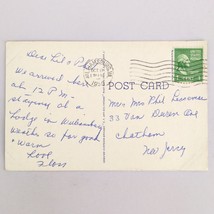 Dear Lil & Phil
We arrived here
at 12 P.M.
staying at a
Lodge in Williamsburg
weather so far good
& warm
Love
Floss
POST CARD
Mr & Mrs Phil
33 Van Doren Ave
Chatham
New Jersey